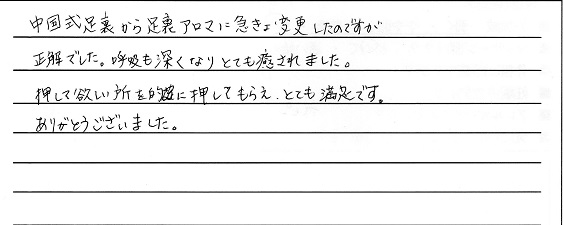 中国式足裏から足裏アロマに急きょ変更したのですが
正解でした。呼吸も深くなりとても癒されました。
押して欲しい所を的確に押してもらえ、とても満足です。
ありがとうございました。